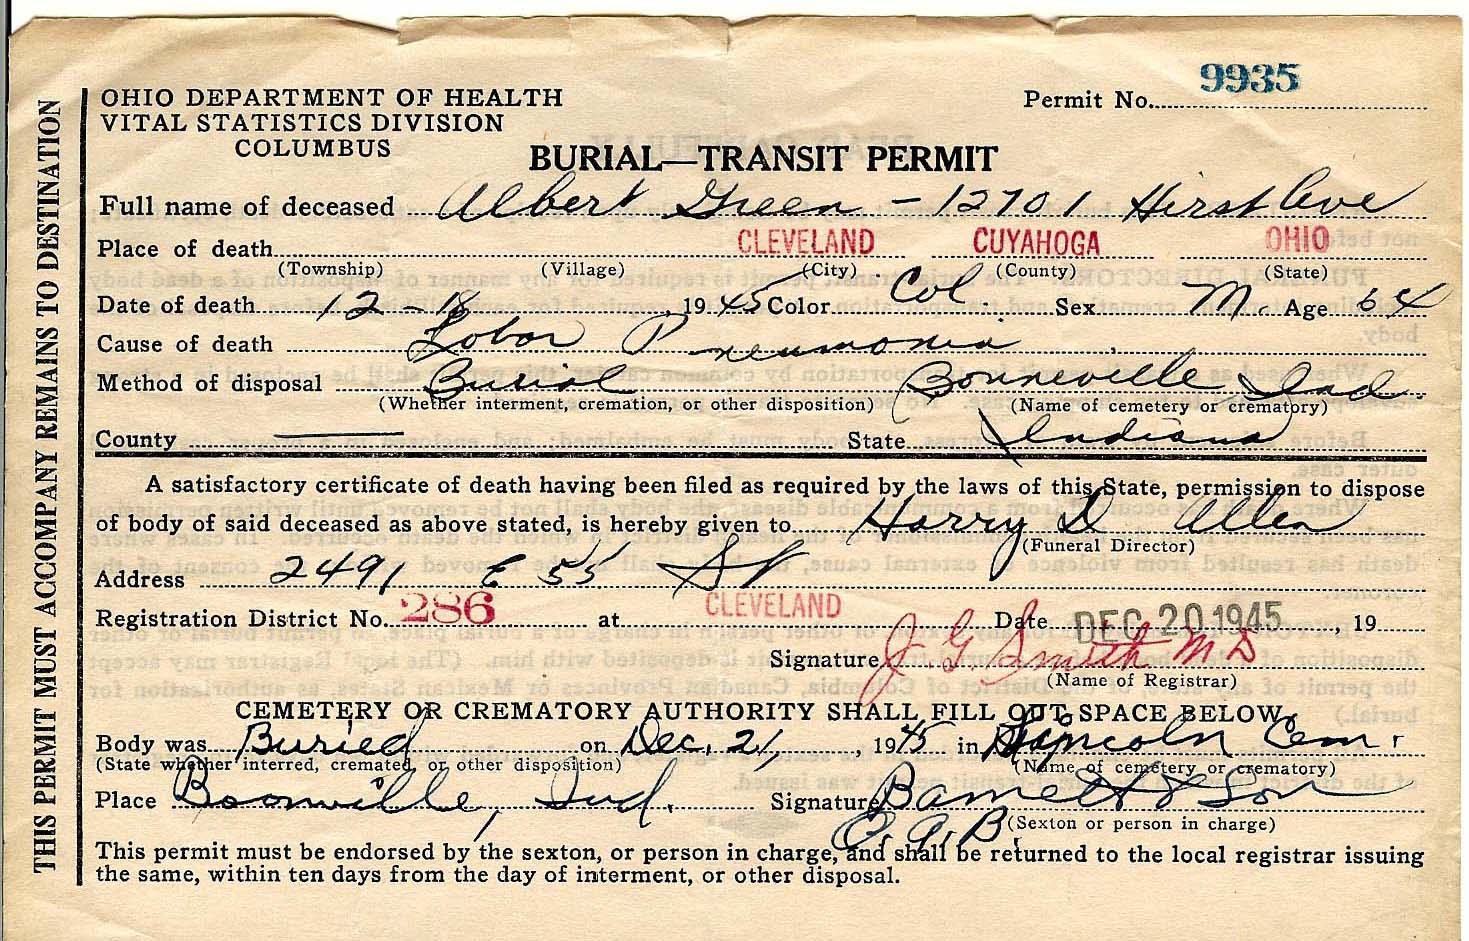 OHIO DEPARTMENT OF HEALTH
VITAL STATISTICS DIVISION
COLUMBUS
Permit No. 9935
BURIAL—TRANSIT PERMIT
Full name of deceased Albert Green - 12701 Hirst Ave
Place of death CLEVELAND CUYAHOGA OHIO
(Township) (Village) (City) (County) (State)
Date of death 12-18, 1945 Color Col. Sex M. Age 64
Cause of death Lobar Pneumonia
Method of disposal Burial Bonneville Ind
(Whether interment, cremation, or other disposition) (Name of cemetery or crematory)
County — State Indiana
A satisfactory certificate of death having been filed as required by the laws of this State, permission to dispose
of body of said deceased as above stated, is hereby given to Harry D Allen
(Funeral Director)
Address 2491 E 55 St
Registration District No. 286 at CLEVELAND Date DEC 20 1945, 19
Signature J. G. Smith M D
(Name of Registrar)
CEMETERY OR CREMATORY AUTHORITY SHALL FILL OUT SPACE BELOW
Body was Buried on Dec. 21, 1945 in Lincoln Cem.
(State whether interred, cremated, or other disposition) (Name of cemetery or crematory)
Place Boonville, Ind. Signature Barnett & Son
C. A. B. (Sexton or person in charge)
This permit must be endorsed by the sexton, or person in charge, and shall be returned to the local registrar issuing
the same, within ten days from the day of interment, or other disposal.
THIS PERMIT MUST ACCOMPANY REMAINS TO DESTINATION